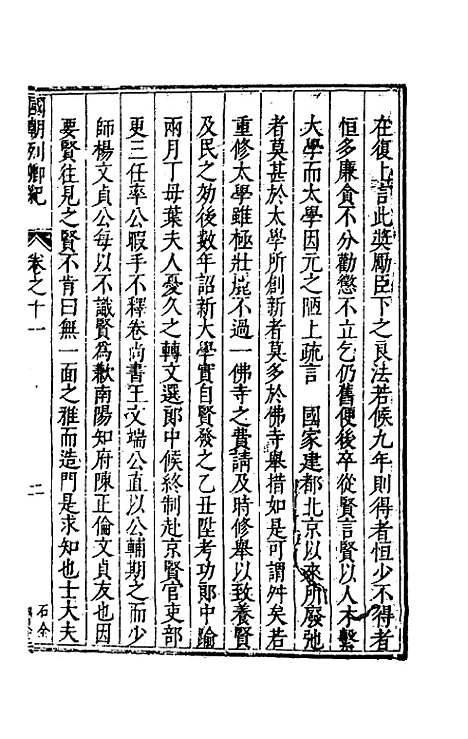 在復上言此奬勵臣下之良法若候九年則得者恒少不得者
恒多廉貪不分勸懲不立乞仍舊便後卒從賢言賢以人木繫
大學而太學因元之陋上疏言　國家建都北京以來所廢弛
者莫甚於太學所創新者莫多於佛寺舉措如是可謂舛矣若
重修太學雖極壯㨶不過一佛寺之費請及時修舉以致養賢
及民之効後數年詔新大學實自賢發之乙丑陞考功郎中踰
兩月丁母葉夫人憂久之轉文選郎中候終制赴京賢官吏部
更三任率公暇手不釋卷尚書王文端公直以公輔期之而少
師楊文貞公每以不識賢為歉南陽知府陳正倫文貞友也因
要賢往見之賢不肯曰無一面之雅而造門是求知也士大夫
國朝列卿紀
卷之十一
二
石全